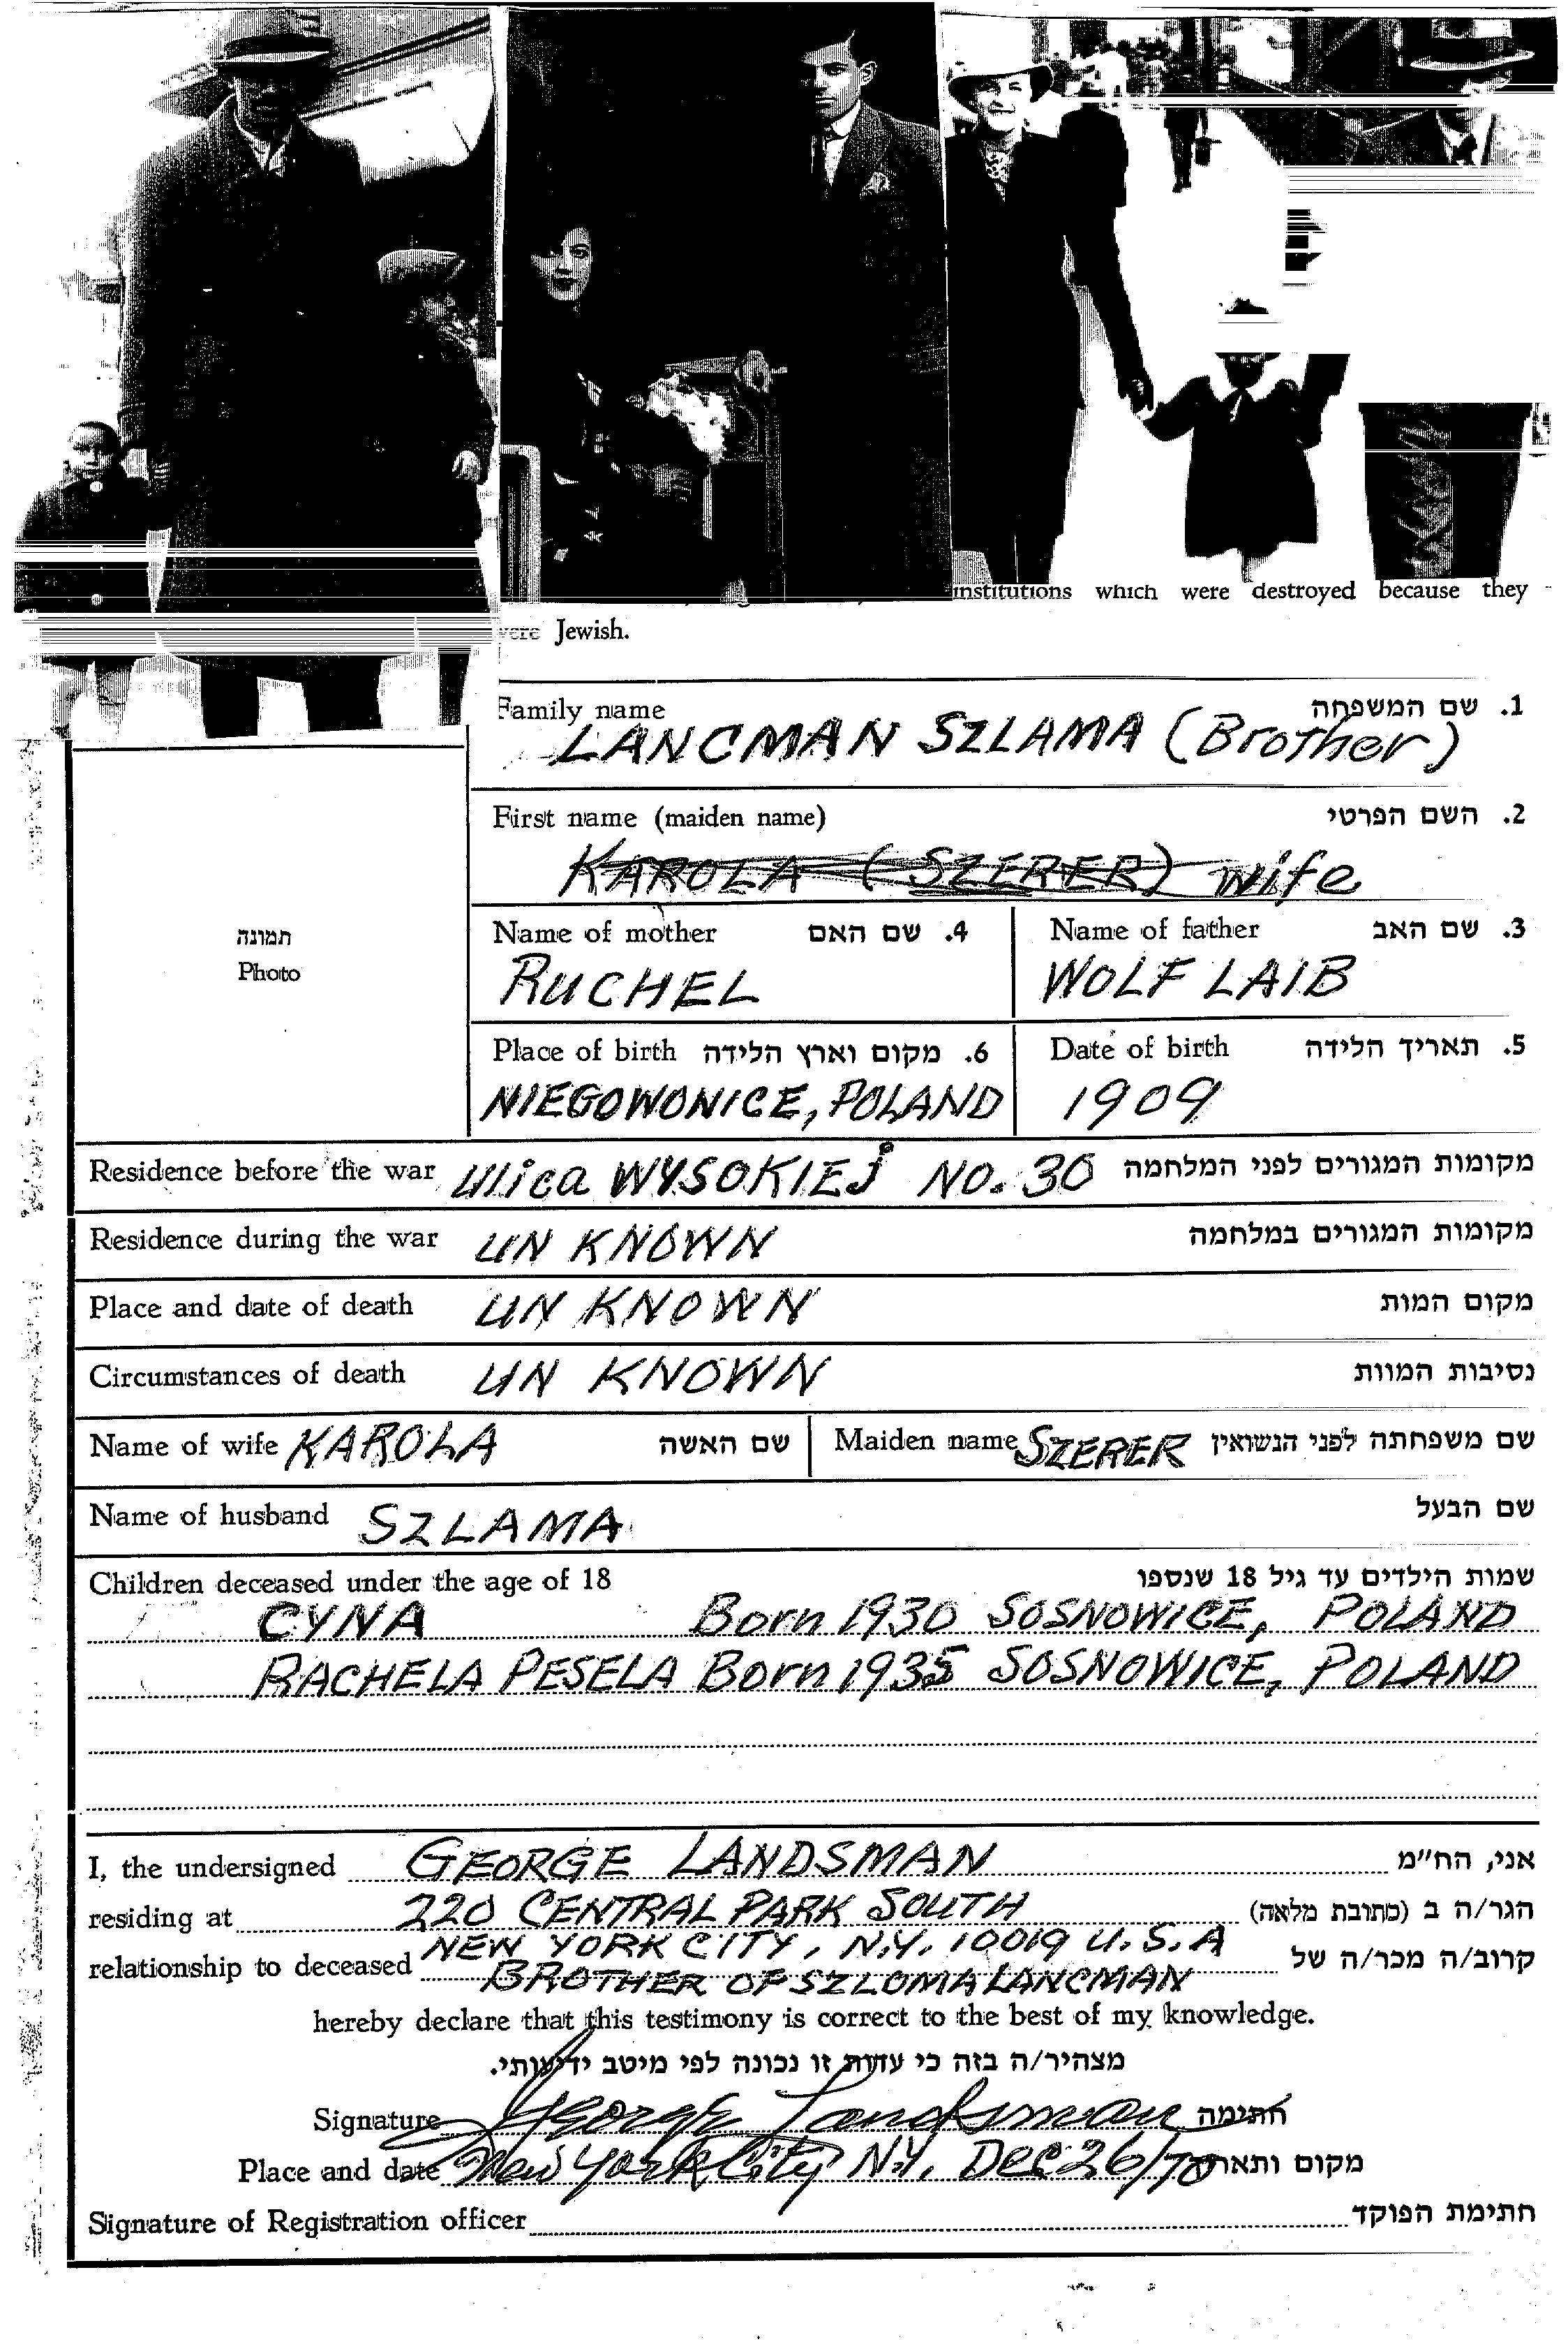 institutions which were destroyed because they
were Jewish.
Family name 1. שם המשפחה
LANCMAN SZLAMA (Brother)
First name (maiden name) 2. השם הפרטי
KAROLA (SZERER) wife
Name of mother 4. שם האם Name of father 3. שם האב
RUCHEL WOLF LAIB
תמונה
Photo
Place of birth 6. מקום וארץ הלידה Date of birth 5. תאריך הלידה
NIEGOWONICE, POLAND 1909
Residence before the war Ulica WYSOKIEJ NO. 30 מקומות המגורים לפני המלחמה
Residence during the war UN KNOWN מקומות המגורים במלחמה
Place and date of death UN KNOWN מקום המות
Circumstances of death UN KNOWN נסיבות המוות
Name of wife KAROLA שם האשה Maiden name SZERER שם משפחתה לפני הנשואין
Name of husband SZLAMA שם הבעל
Children deceased under the age of 18 שמות הילדים עד גיל 18 שנספו
CYNA Born 1930 SOSNOWICE, POLAND
RACHELA PESELA Born 1935 SOSNOWICE, POLAND
I, the undersigned GEORGE LANDSMAN אני, הח"מ
residing at 220 CENTRAL PARK SOUTH הגר/ה ב (כתובת מלאה)
NEW YORK CITY, N.Y. 10019 U.S.A
relationship to deceased BROTHER OF SZLOMA LANCMAN קרוב/ה מכר/ה של
hereby declare that this testimony is correct to the best of my knowledge.
מצהיר/ה בזה כי עדות זו נכונה לפי מיטב ידיעותי.
Signature George Landsman חתימה
Place and date New York City N.Y. Dec 26/70 מקום ותאריך
Signature of Registration officer חתימת הפוקד